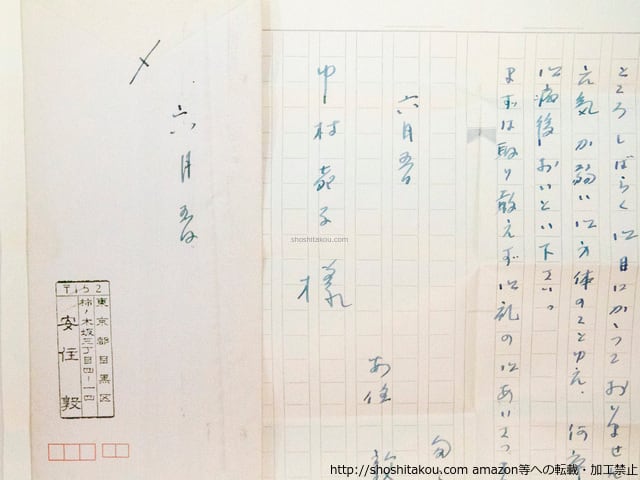 ところしばらく御目にかかっておりませ
元気が弱い御方体のことゆえ、何
御病後おいとい下さい。
まずは取り敢えず御礼のごあいさつ
六月五日
安住 敦
中村 子 様
六月五日
〒152
東京都目黒区
柿ノ木坂三丁目四ー一四
安住 敦
shoshitakou.com
http://shoshitakou.com amazon等への転載・加工禁止